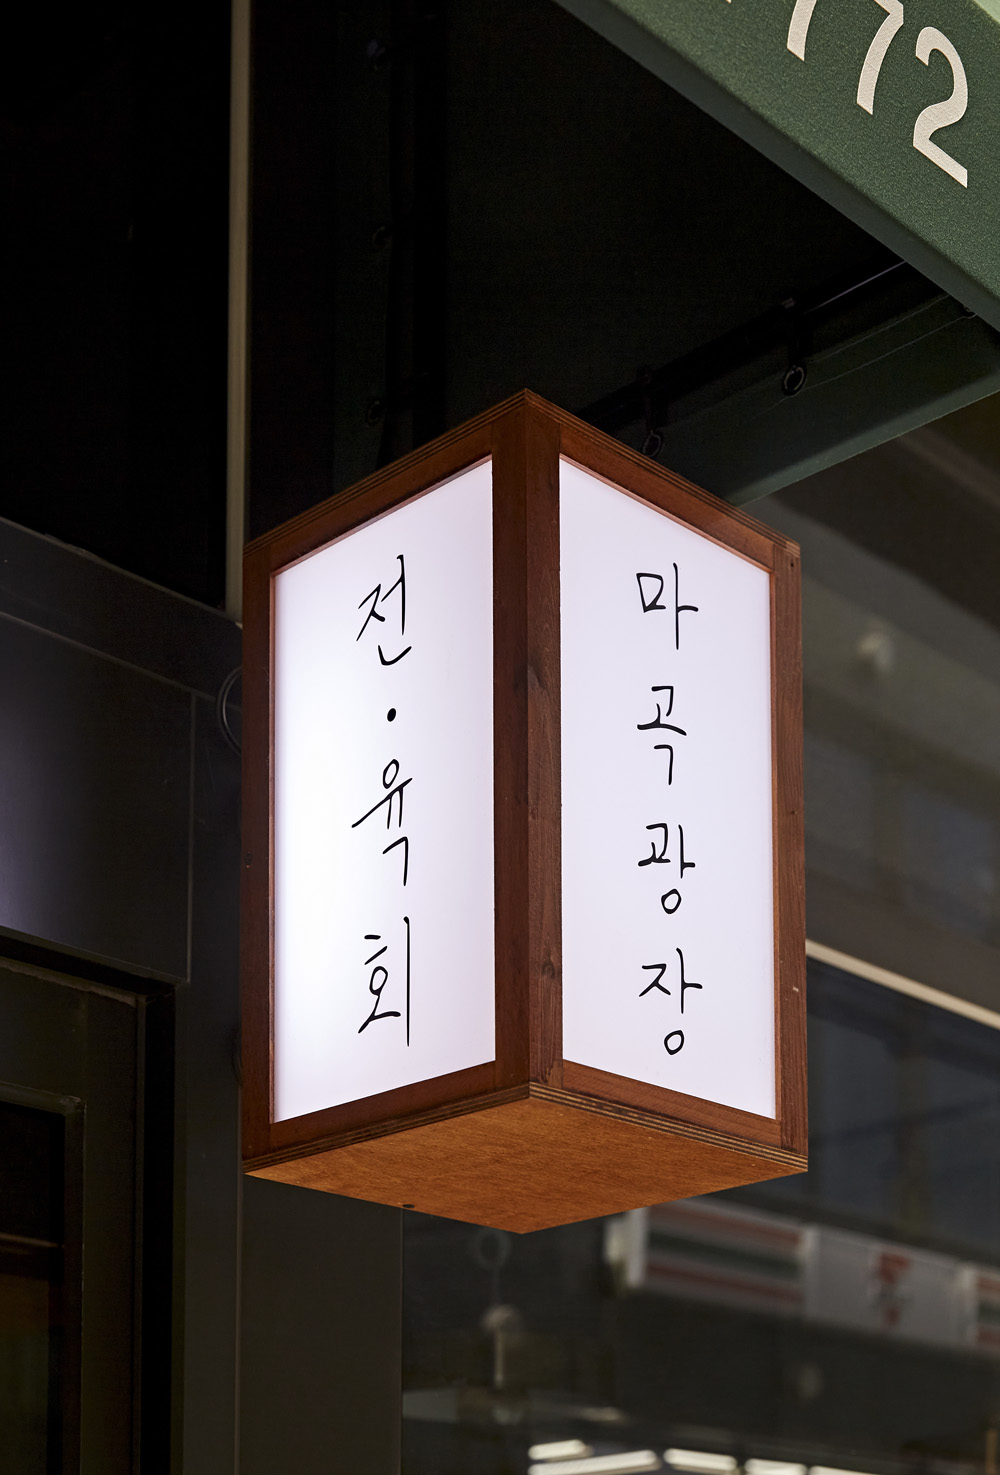 772
전·육회
마곡광장